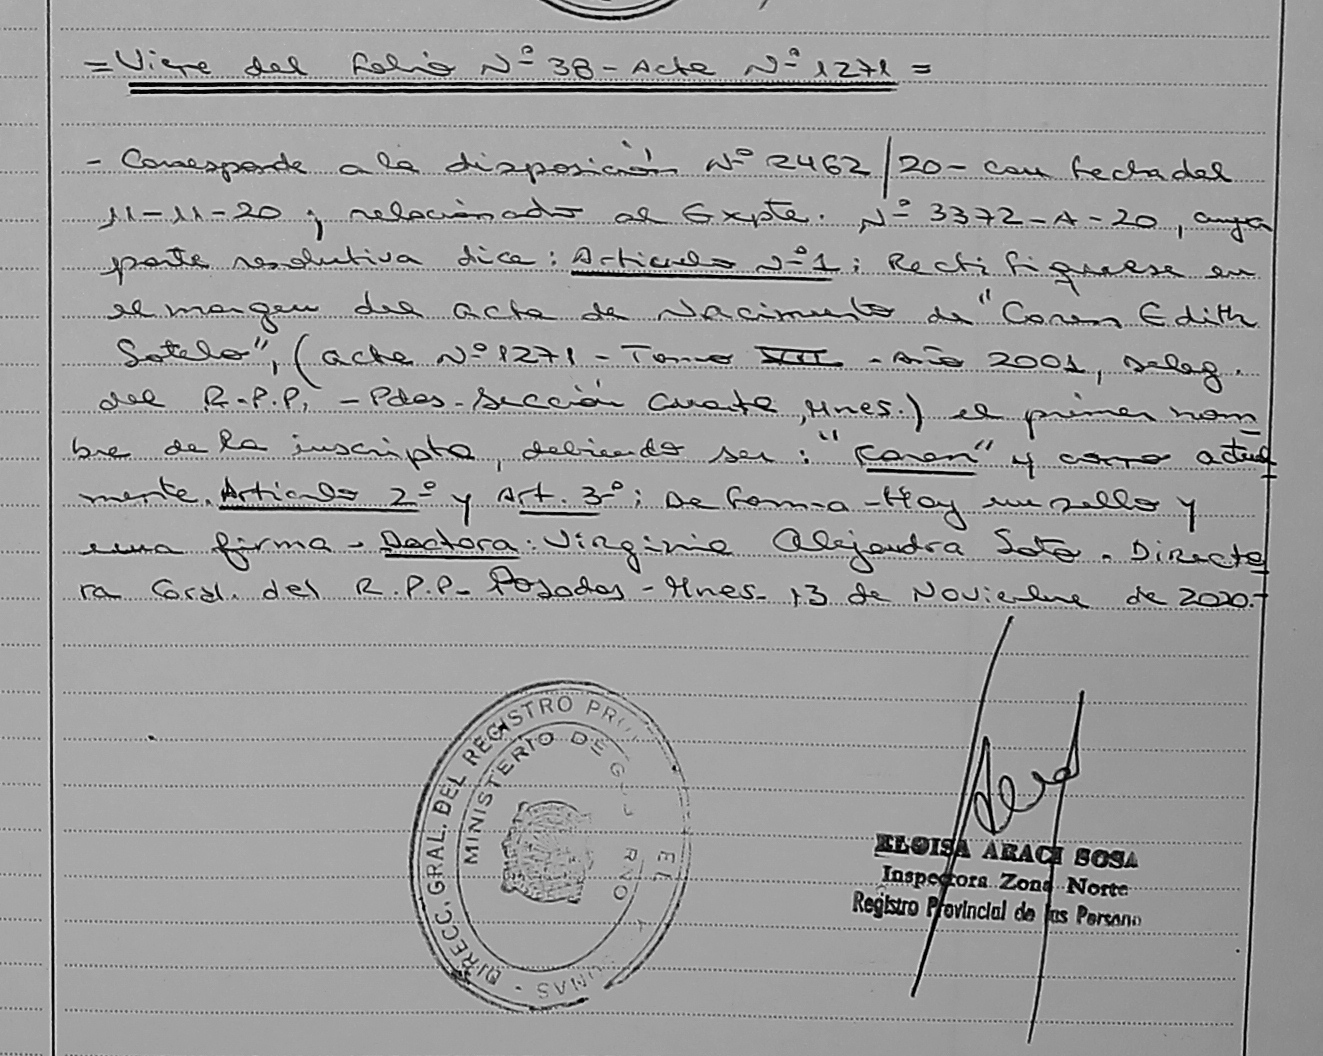 = Viene del Folio Nº 38 - Acta Nº 1271 =
- Corresponde a la disposición Nº 2462/20 - con fecha del
11-11-20 ; relacionado al Expte. Nº 3372-A-20, cuya
parte resolutiva dice: Articulo Nº 1: Rectifiquese en
el margen del acta de Nacimiento de "Coren Edith
Sotelo", (acta Nº 1271 - Tomo VII - Año 2001, deleg.
del R.P.P. - Pdas. Sección Cuarta, Mnes.) el primer nom
bre de la inscripta, debiendo ser: "Karen" y como actual
mente. Articulo 2º y Art. 3º: De Forma - Hay un sello y
una firma - Doctora: Virginia Alejandra Soto. Directo
ra Gral. del R.P.P. Posadas - Mnes. 13 de Noviembre de 2020.-
DIRECC. GRAL. DEL REGISTRO PRO
MINISTERIO DE
ELOISA ARACI SOSA
Inspectora Zona Norte
Registro Provincial de las Persona